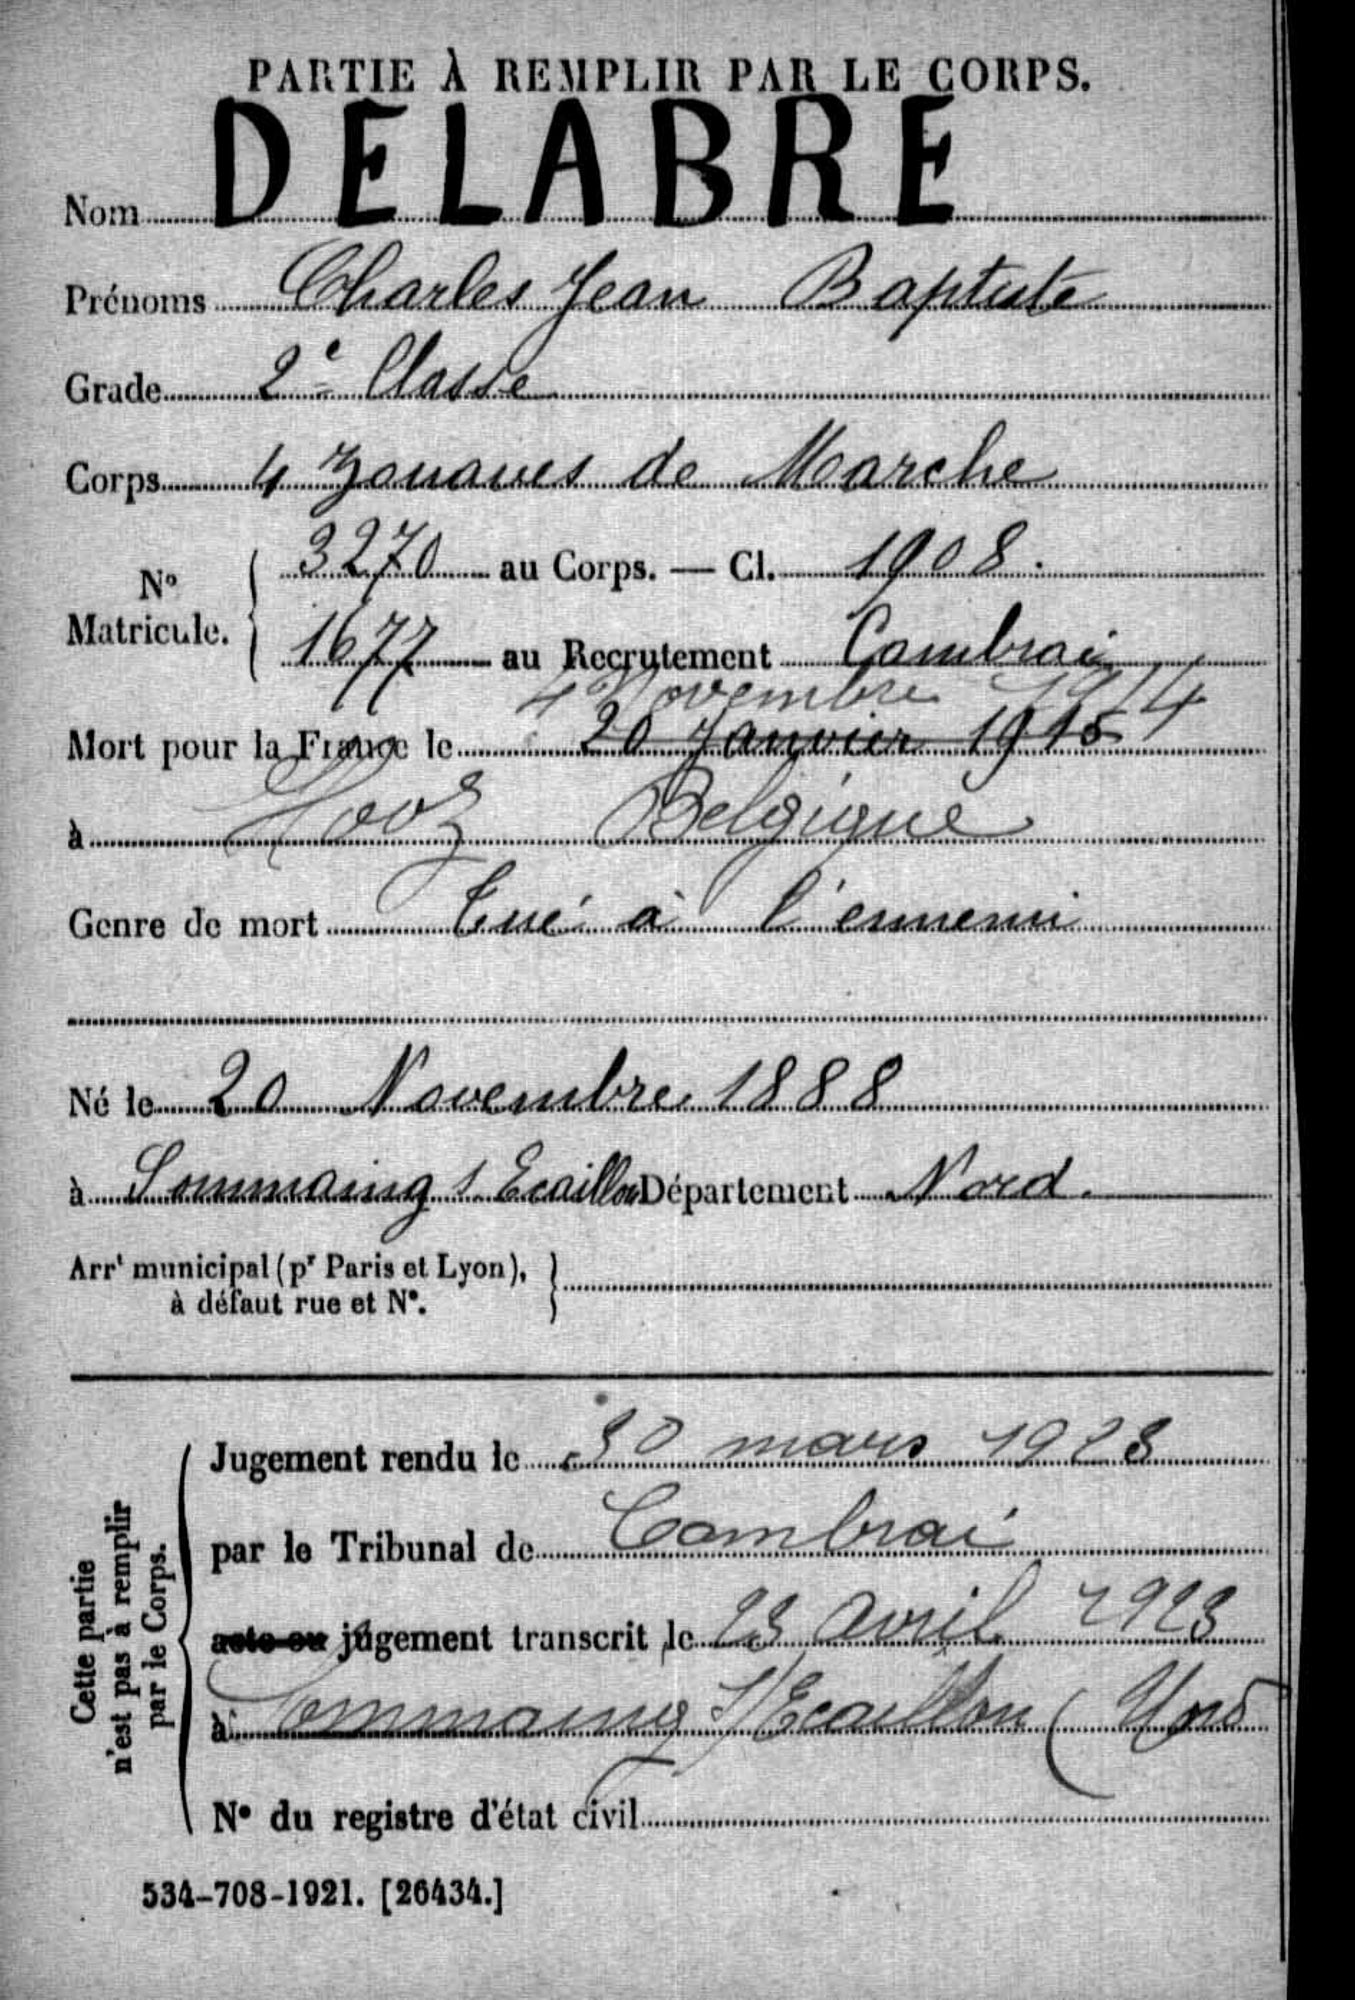 PARTIE À REMPLIR PAR LE CORPS.
Nom DELABRE
Prénoms Charles Jean Baptiste
Grade 2e Classe
Corps 4 Zouaves de Marche
No Matricule. { 3270 au Corps. — Cl. 1908.
1677 au Recrutement Cambrai
4 Novembre 1914
Mort pour la France le 20 Janvier 1915
à Belgique
Genre de mort Tué à l'ennemi
Né le 20 Novembre 1888
à Sommaing s Ecaillon Département Nord.
Arrt municipal (pr Paris et Lyon), }
à défaut rue et N°.
Cette partie
n'est pas à remplir
par le Corps.
Jugement rendu le 30 mars 1923
par le Tribunal de Cambrai
acte ou jugement transcrit le 23 avril 1923
à Sommaing S/Ecaillon (Nord
N° du registre d'état civil
534-708-1921. [26434.]